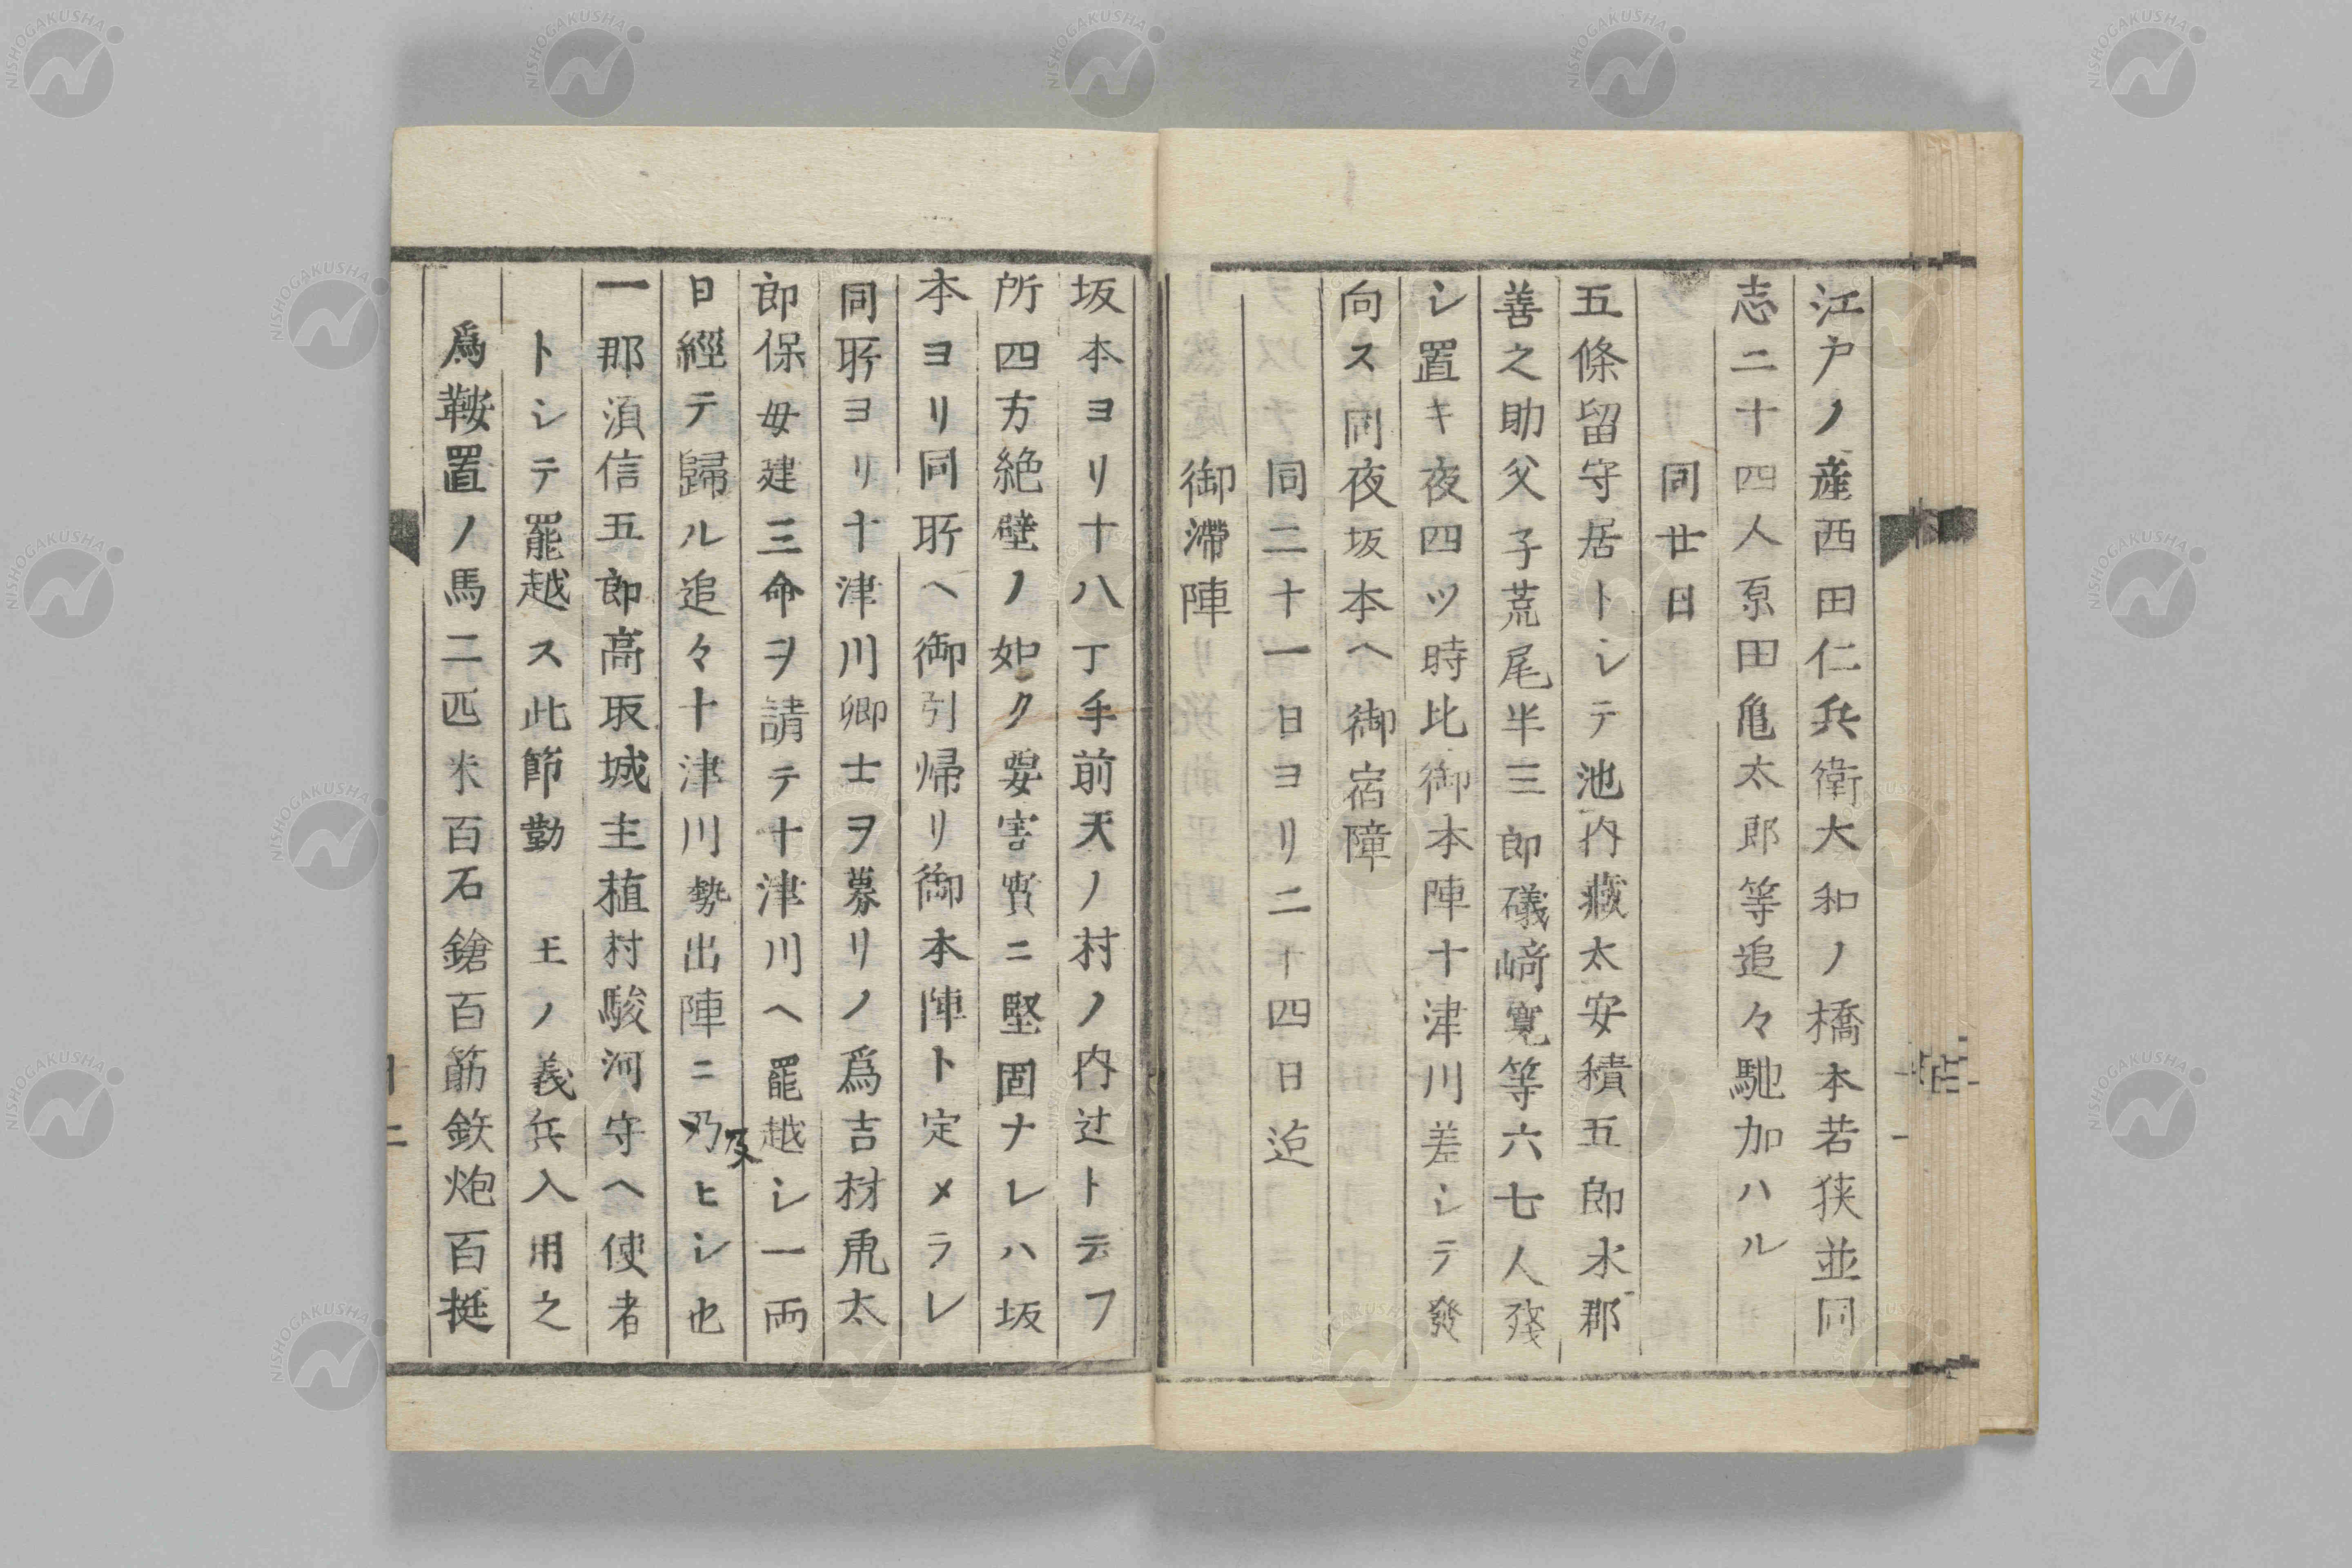 江戸ノ産西田仁兵衛大和ノ橋本若狭並同
志二十四人原田亀太郎等追々馳加ハル
同廿日
五條留守居トシテ池内蔵太安積五郎水郡
善之助父子荒尾半三郎礒﨑寛等六七人残
シ置キ夜四ツ時比御本陣十津川差シテ發
向ス同夜坂本ヘ御宿障
同二十一日ヨリ二十四日迠
御滞陣
坂本ヨリ十八丁手前天ノ村ノ内辻ト云フ
所四方絶壁ノ如ク要害實ニ堅固ナレハ坂
本ヨリ同所ヘ御引帰リ御本陣ト定メラレ
同所ヨリ十津川卿士ヲ募リノ爲吉材乕太
郎保母建三命ヲ請テ十津川ヘ罷越シ一両
日經テ歸ル追々十津川勢出陣ニ乃ヒシ也
及
一那須信五郎高取城主植村駿河守ヘ使者
トシテ罷越ス此節勤 王ノ義兵入用之
爲鞍置ノ馬二匹米百石鎗百筋鉃炮百挺
NISHOGAKUSHA